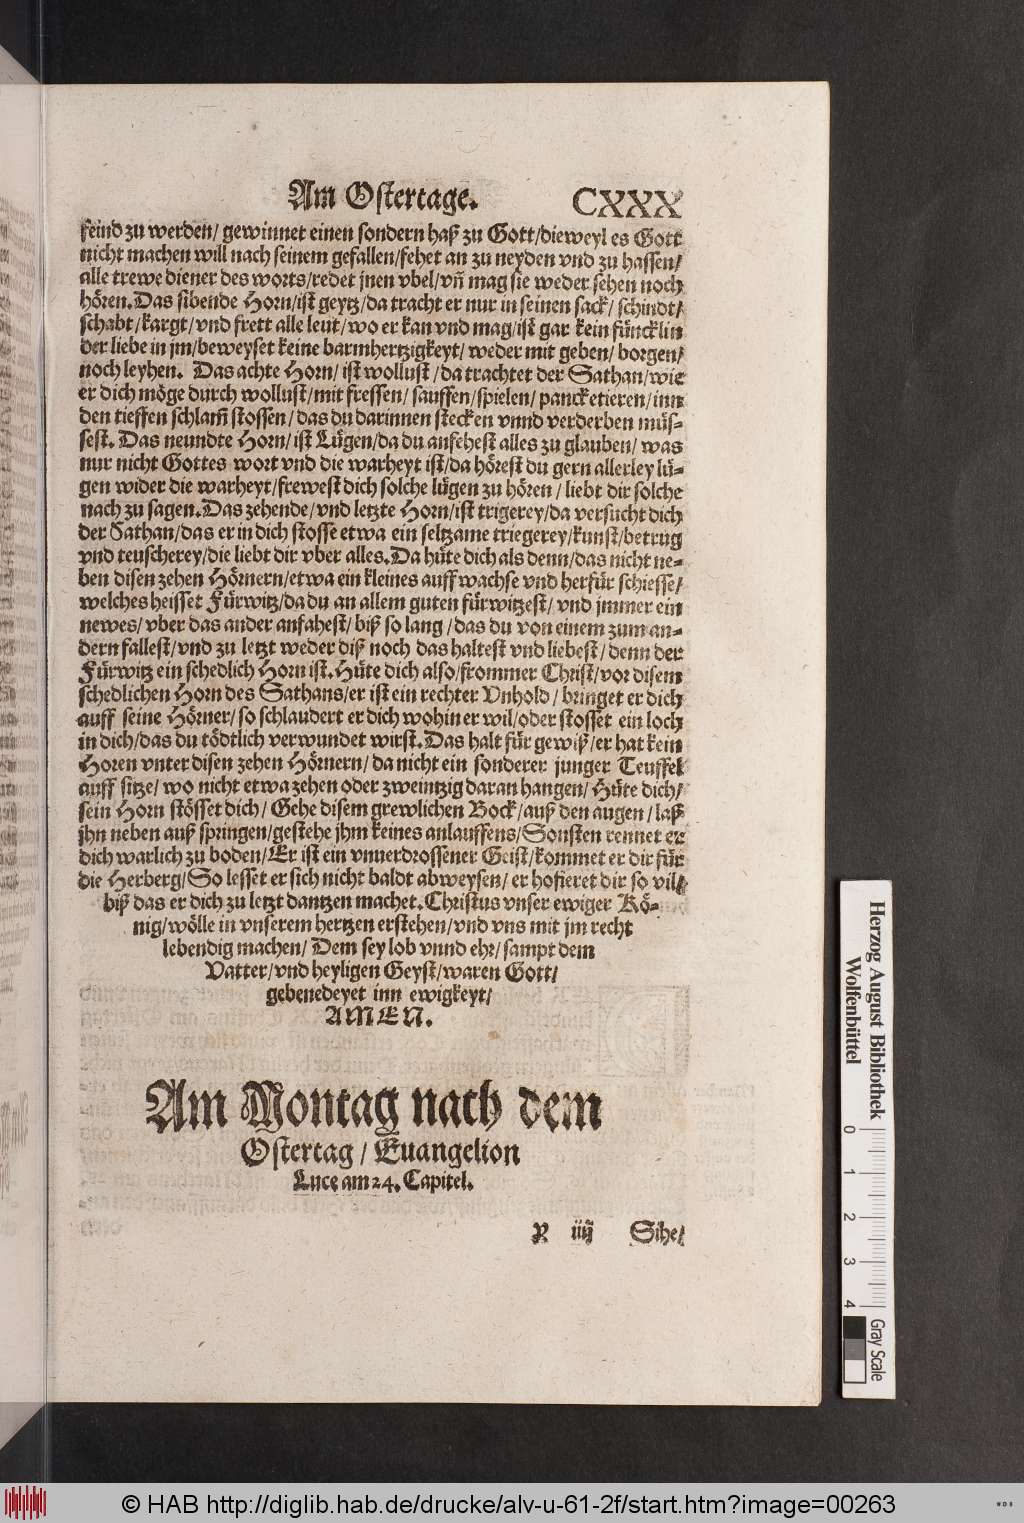 Am Ostertage. CXXX
feind zu werden/ gewinnet einen sondern haß zu Gott/dieweyl es Gott
nicht machen will nach seinem gefallen/fehet an zu neyden vnd zu hassen/
alle trewe diener des worts/redet jnen vbel/vñ mag sie weder sehen noch
hören. Das sibende Horn/ist geytz/da tracht er nur in seinen sack/ schindt/
schabt/kargt/vnd frett alle leut/wo er kan vnd mag/ist gar kein füncklin
der liebe in jm/beweyset keine barmhertzigkeyt/ weder mit geben/ borgen/
noch leyhen. Das achte Horn/ ist wollust/da trachtet der Sathan/wie
er dich möge durch wollust/mit fressen/ sauffen/spielen/ pancketieren/inn
den tieffen schlam̃ stossen/das du darinnen stecken vnnd verderben müs-
sest. Das neundte Horn/ ist Lügen/da du anfehest alles zu glauben/ was
nur nicht Gottes wort vnd die warheyt ist/da hörest du gern allerley lü-
gen wider die warheyt/frewest dich solche lügen zu hören/ liebt dir solche
nach zu sagen. Das zehende/vnd letzte Horn/ist trigerey/da versucht dich
der Sathan/das er in dich stosse etwa ein seltzame triegerey/kunst/betrug
vnd teuscherey/die liebt dir vber alles. Da hüte dich als denn/das nicht ne-
ben disen zehen Hörnern/etwa ein kleines auff wachse vnd herfür schiesse/
welches heisset Fürwitz/da du an allem guten fürwitzest/ vnd jmmer ein
newes/vber das ander anfahest/ biß so lang/das du von einem zum an-
dern fallest/vnd zu letzt weder diß noch das haltest vnd liebest/ denn der
Fürwitz ein schedlich Horn ist. Hüte dich also/frommer Christ/vor disem
schedlichen Horn des Sathans/er ist ein rechter Vnhold/ bringet er dich
auff seine Hörner/so schlaudert er dich wohin er wil/oder stosset ein loch
in dich/das du tödtlich verwundet wirst. Das halt für gewiß/er hat kein
Horen vnter disen zehen Hörnern/ da nicht ein sonderer junger Teuffel
auff sitze/ wo nicht etwa zehen oder zweintzig daran hangen/ Hüte dich/
sein Horn stösset dich/ Gehe disem grewlichen Bock/auß den augen/ laß
jhn neben auß springen/gestehe jhm keines anlauffens/Sonsten rennet er
dich warlich zu boden/Er ist ein vnuerdrossener Geist/kommet er dir für
die Herberg/So lesset er sich nicht baldt abweysen/ er hofieret dir so vil/
biß das er dich zu letzt dantzen machet. Christus vnser ewiger Kö-
nig/wölle in vnserem hertzen erstehen/vnd vns mit jm recht
lebendig machen/ Dem sey lob vnnd ehr/ sampt dem
Vatter/vnd heyligen Geyst/waren Gott/
gebenedeyet inn ewigkeyt/
AMEN.
Am Montag nach dem
Ostertag / Euangelion
Luce am 24. Capitel.
R iiij Sihe/
Herzog August Bibliothek
Wolfenbüttel
0 1 2 3 4
Gray Scale
© HAB http://diglib.hab.de/drucke/alv-u-61-2f/start.htm?image=00263